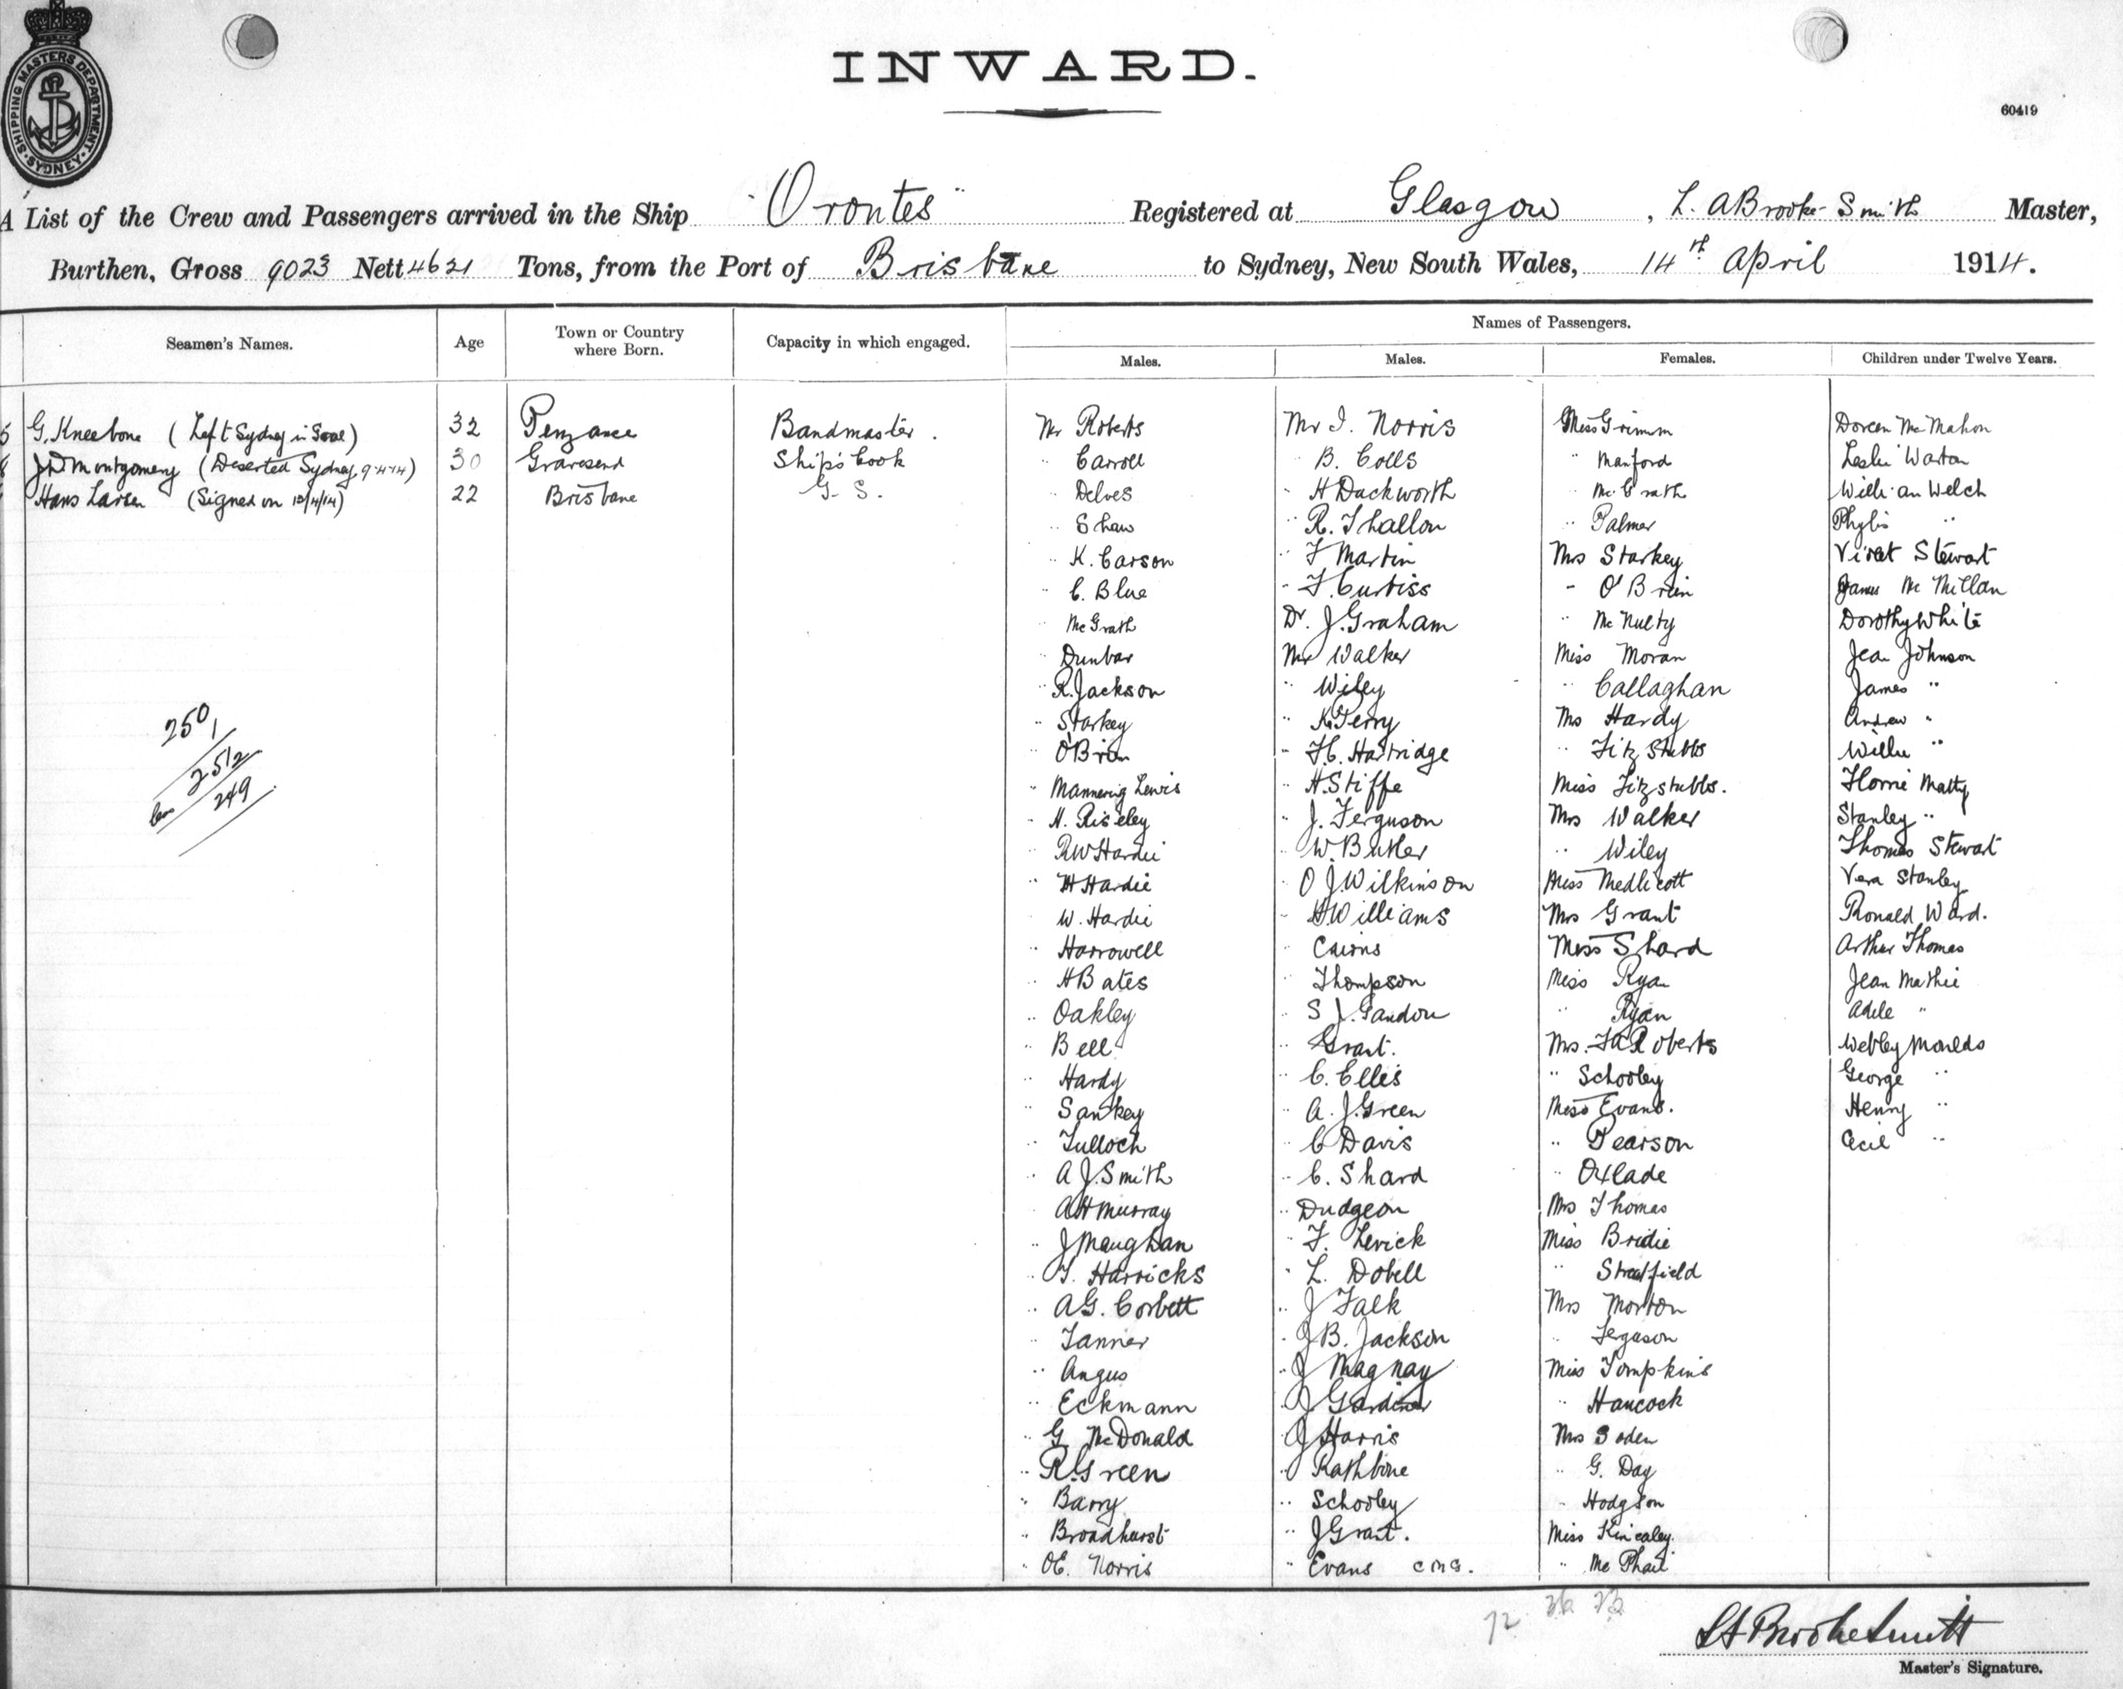 SHIPPING MASTERS DEPARTMENT · SYDNEY ·
INWARD.
60419
A List of the Crew and Passengers arrived in the Ship "Orontes" Registered at Glasgow, L. A Brooke-Smith Master,
Burthen, Gross 9023 Nett 4621 Tons, from the Port of Brisbane to Sydney, New South Wales, 14th April 1914.
Seamen's Names. Age Town or Country where Born. Capacity in which engaged. Names of Passengers.
Males. Males. Females. Children under Twelve Years.
G. Kneebone (Left Sydney in Goal) 32 Penzance Bandmaster. Mr Roberts Mr I. Norris Miss Grimm Doreen McMahon
Montgomery (Deserted Sydney 9-4-14) 30 Gravesend Ship's Cook " Carroll " B. Colls " Manford Leslie Warton
Hans Larsen (Signed on 12/4/14) 22 Brisbane G. S. " Delves " H Duckworth " McGrath William Welch
" Shaw " R. Thallon " Palmer Phylis "
" K. Carson " F Martin Mrs Starkey Violet Stewart
" C. Blue " F. Curtiss " O'Brien James McMillan
" McGrath Dr. J. Graham " McNulty Dorothy White
" Dunbar Mr Walker Miss Moran Jean Johnson
" R. Jackson " Wiley " Callaghan James "
" Starkey " K. Terry Mrs Hardy Andrew "
" O'Brien " F. C. Hartridge " Fitzstubbs Willie "
" Mannering Lewis " H. Stiffe Miss Fitzstubbs. Florrie Matty
" H. Riseley " J. Ferguson Mrs Walker Stanley "
" R W Hardie " W. Butler " Wiley Thomas Stewart
" H Hardie " O J Wilkinson Miss Medlicott Vera Stanley
" W. Hardie " H Williams Mrs Grant Ronald Ward.
" Harrowell " Cairns Miss Shard Arthur Thomas
" H Bates " Thompson Miss Ryan Jean Mathie
" Oakley " S J. Gandon " Ryan Adele "
" Bell " Grant. Mrs. F A Roberts Webley Moulds
" Hardy " C. Ellis " Schooley George "
" Sankey " A. J. Green Miss Evans. Henry "
" Tulloch " C Davis " Pearson Cecil "
" A J. Smith " C. Shard " Oxlade
" A H Murray " Dudgeon Mrs Thomas
" J Maughan " F. Levick Miss Bridie
" T. Harricks " L. Dobell " Streatfield
" A G. Corbett " J Falk Mrs Morton
" Tanner " J B. Jackson " Fergason
" Angus " J Magnay Miss Tompkins
" Eckmann " J Gardiner " Hancock
" G. McDonald " J Harris Mrs Soden
" R. Green " Rathbone " G. Day
" Barry " Schooley " Hodgson
" Broadhurst " J Grant. Miss Kinealey.
" O E. Norris " Evans CMG. " McPhail
250/1
251/2
249
72 36 23
L A Brooke Smith
Master's Signature.